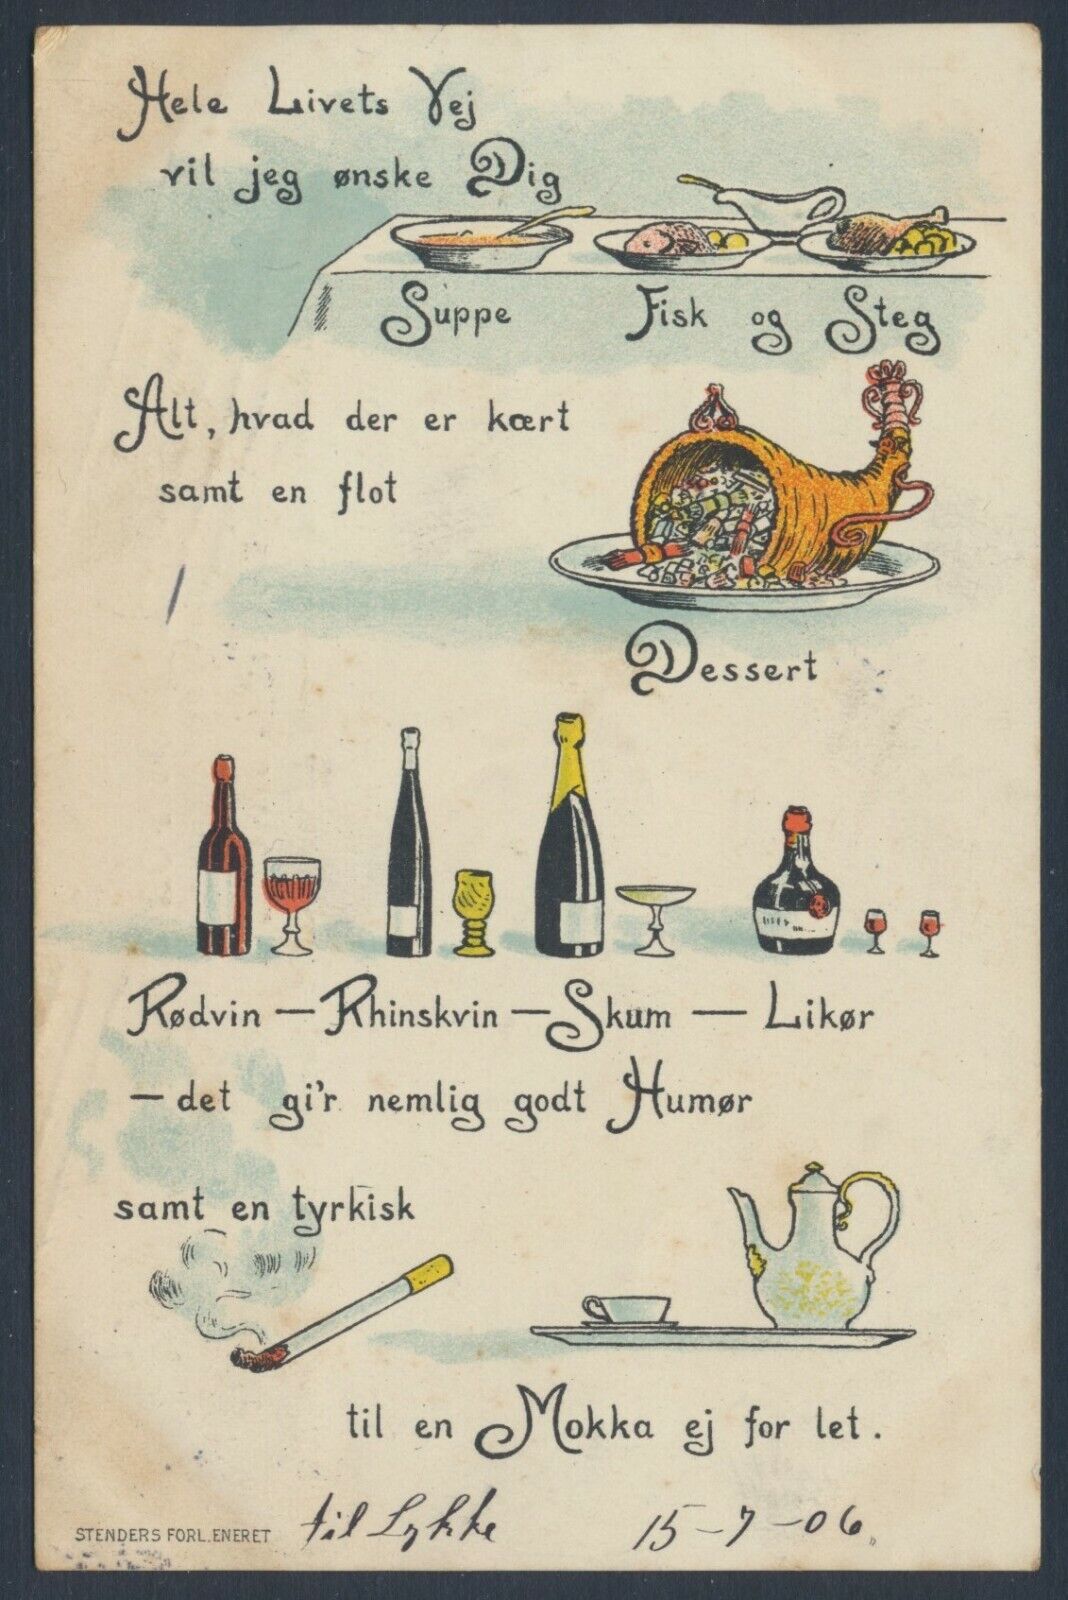 Hele Livets Vej
vil jeg ønske Dig
Suppe Fisk og Steg
Alt, hvad der er kært
samt en flot
Dessert
Rødvin — Rhinskvin — Skum — Likør
— det gi'r nemlig godt Humør
samt en tyrkisk
til en Mokka ej for let.
STENDERS FORL. ENERET til Lykke 15-7-06